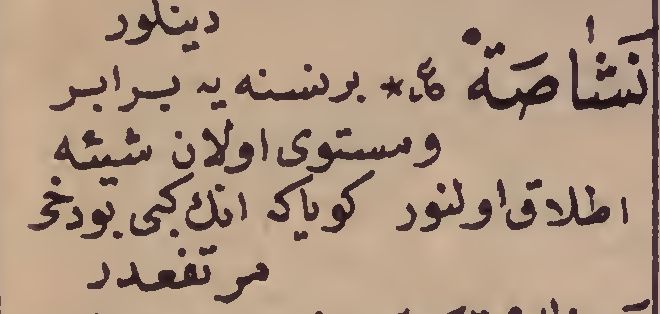 دينلور
نَشَاصَةٌ ع * برنسنه يه برابر
ومستوى اولان شيئه
اطلاق اولنور كوياكه انك كبى بودخى
مرتفعدر